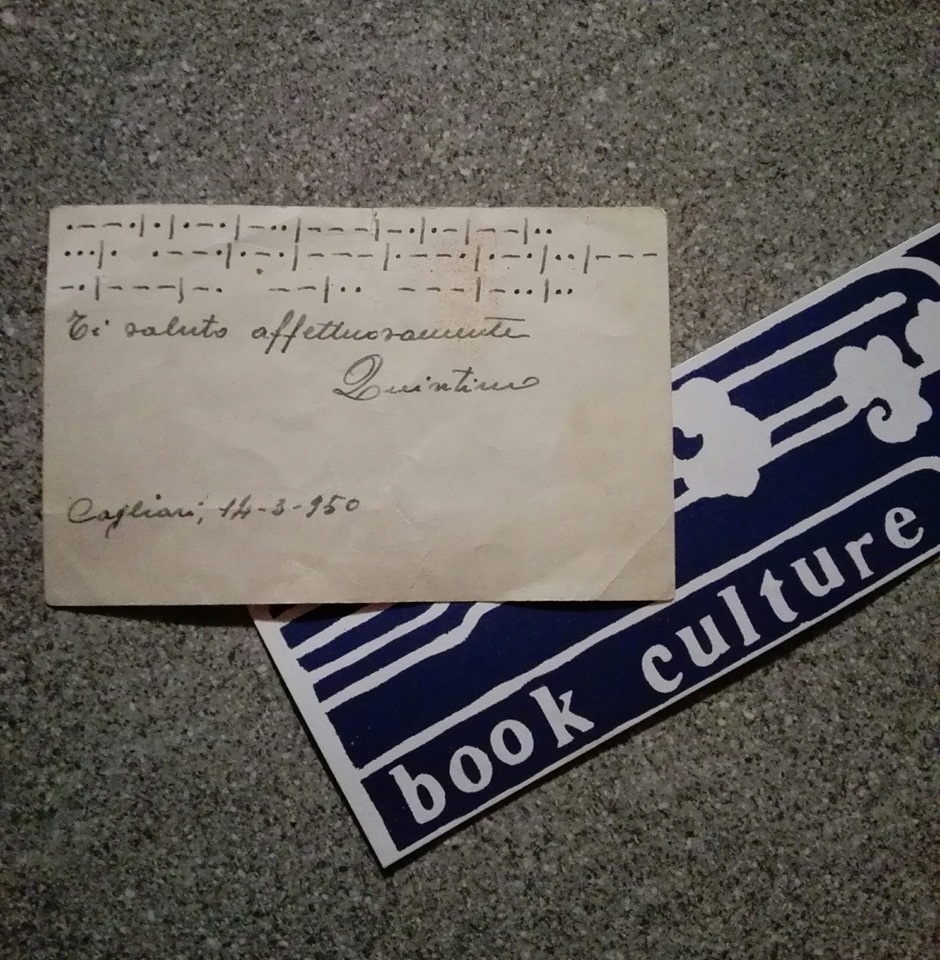 .--.|.|.-.|-..|---|-.|.-|--|..
...|. .--.|.-.|---|.--.|.-.|..|---
-.|---|-. --|.. ---|-..|..
Ti saluto affettuosamente
Quintino
Cagliari, 14-3-950
book culture